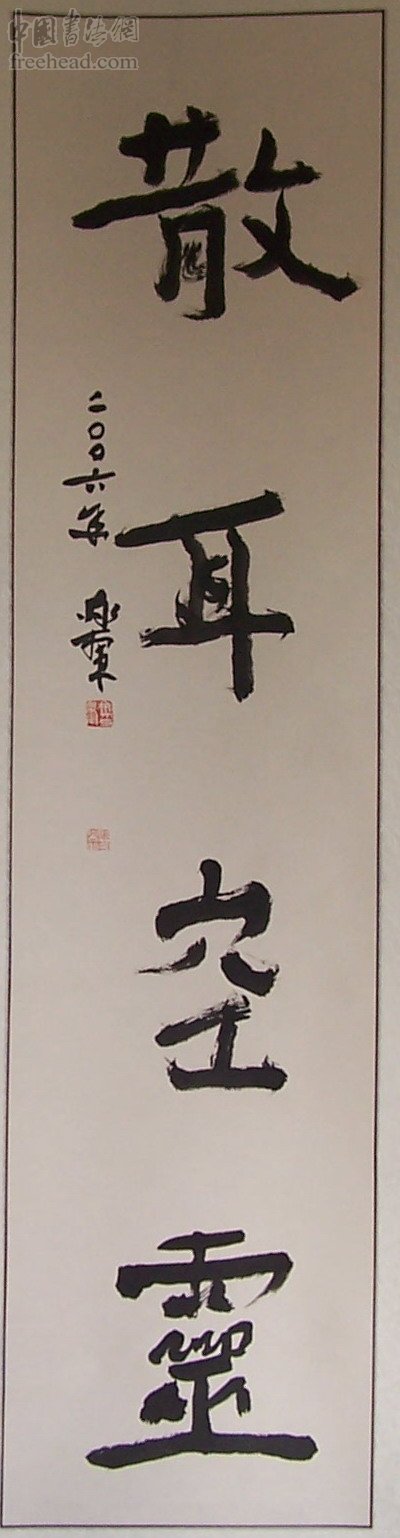 中国书法網
freehead.com
散耳空靈
二〇〇六年